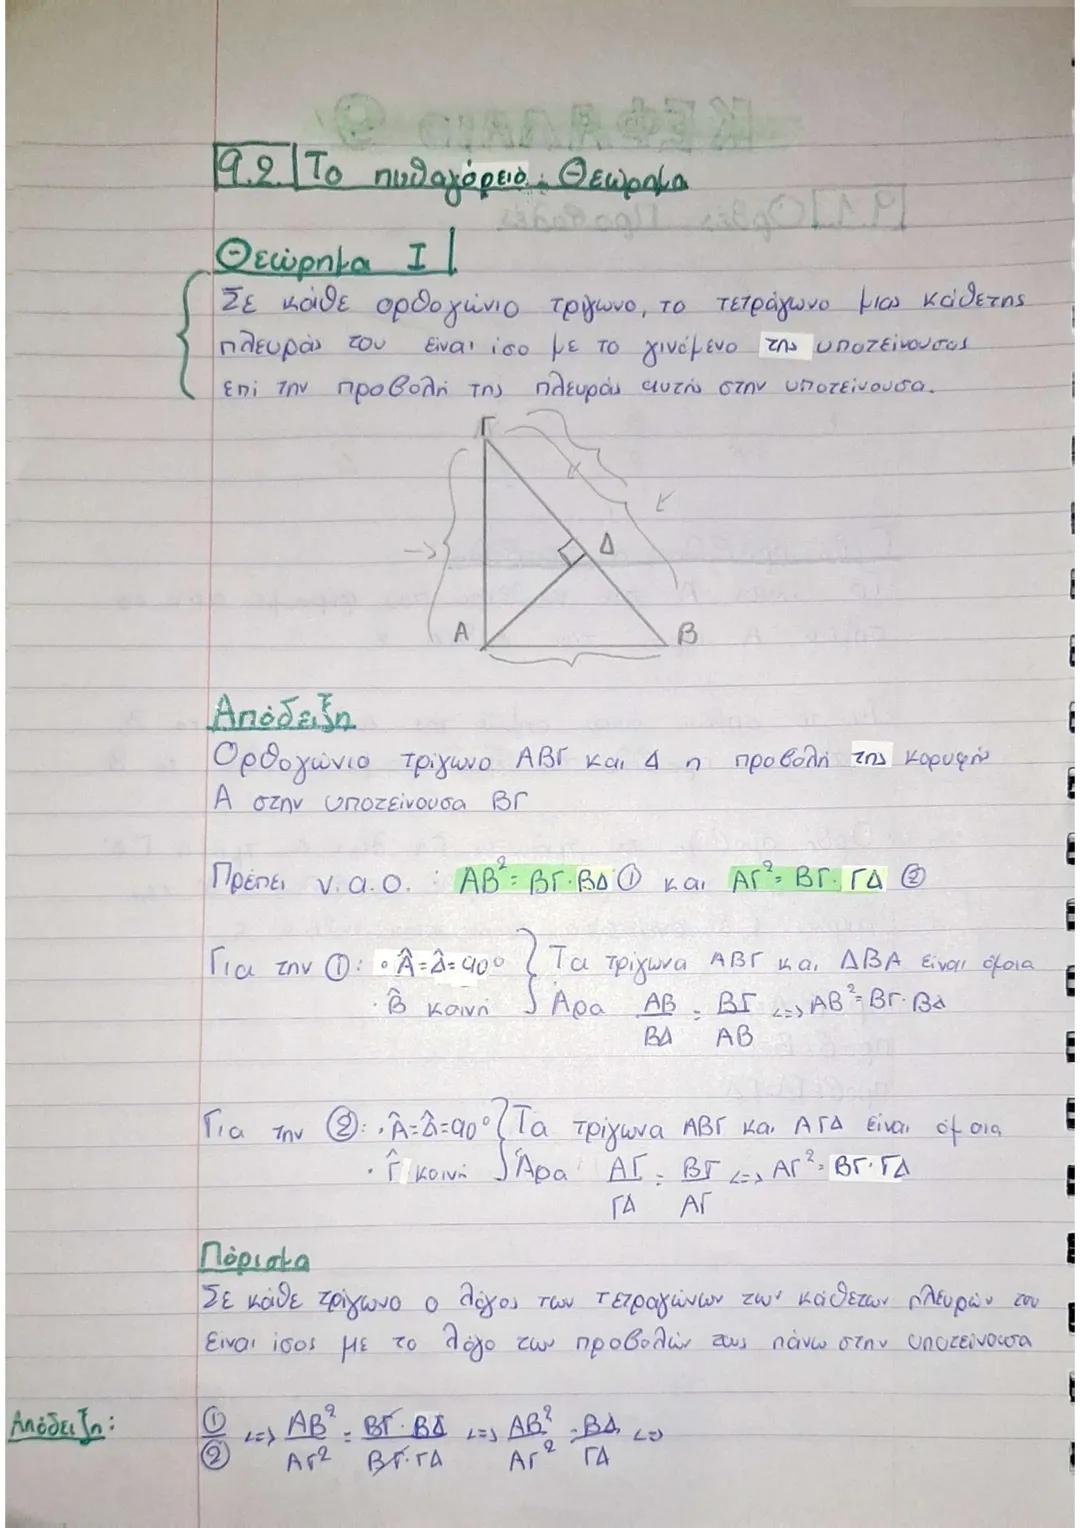 9.2. Το πυθαγόρειο Θεώρημα
Θεώρημα I
Σε κάθε ορθογώνιο τρίγωνο, το τετράγωνο μιας κάθετης
πλευράς του είναι ίσο με το γινόμενο της υποτείνουσας
επί την προβολή της πλευράς αυτής στην υποτείνουσα.
Γ
Δ
Α Β
Απόδειξη
Ορθογώνιο τρίγωνο ΑΒΓ και Δ η προβολή της κορυφής
Α στην υποτείνουσα ΒΓ
Πρέπει ν.α.ο. : ΑΒ²=ΒΓ·ΒΔ ① και ΑΓ²=ΒΓ·ΓΔ ②
Για την ①: · Â=Δ̂=90° } Τα τρίγωνα ΑΒΓ και ΔΒΑ είναι όμοια
· Β̂ κοινή Άρα ΑΒ/ΒΔ = ΒΓ/ΑΒ <=> ΑΒ²=ΒΓ·ΒΔ
Για την ②: · Â=Δ̂=90° } Τα τρίγωνα ΑΒΓ και ΑΓΔ είναι όμοια
· Γ̂ κοινή Άρα ΑΓ/ΓΔ = ΒΓ/ΑΓ <=> ΑΓ²=ΒΓ·ΓΔ
Πόρισμα
Σε κάθε τρίγωνο ο λόγος των τετραγώνων των κάθετων πλευρών του
είναι ίσος με το λόγο των προβολών τους πάνω στην υποτείνουσα
Απόδειξη: ①/② <=> ΑΒ²/ΑΓ² = ΒΓ·ΒΔ/ΒΓ·ΓΔ <=> ΑΒ²/ΑΓ² = ΒΔ/ΓΔ <=>